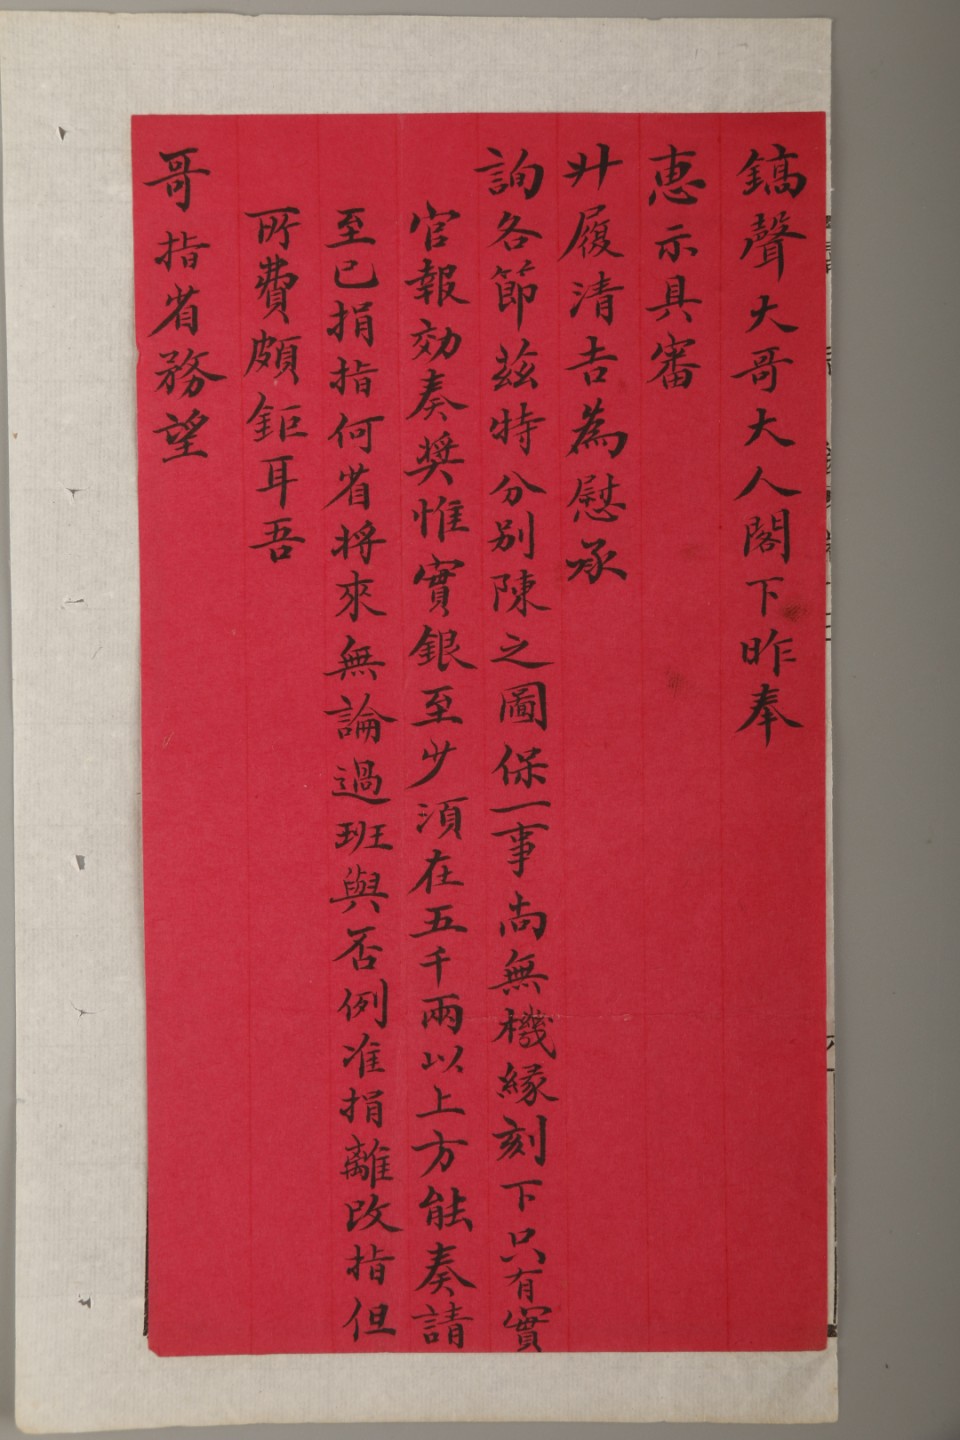 鎬聲大哥大人閣下昨奉
惠示具審
升履清吉為慰承
詢各節茲特分別陳之圖保一事尚無機緣刻下只有實
官報効奏奬惟實銀至少須在五千兩以上方能奏請
至已捐指何省將來無論過班與否例准捐離改指但
所費頗鉅耳吾
哥指省務望